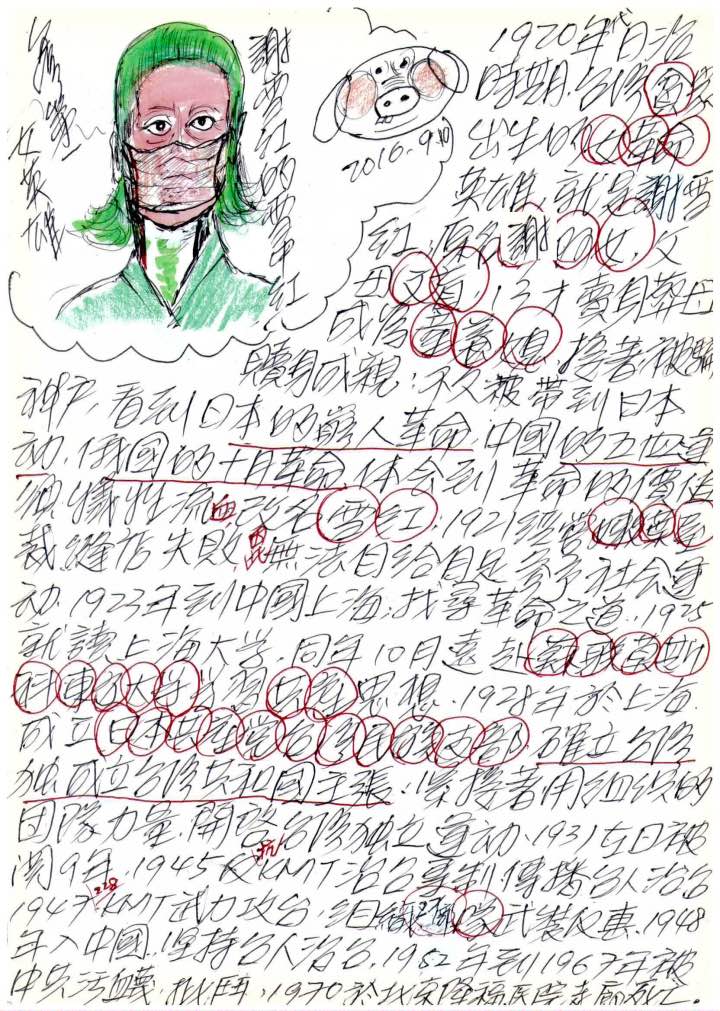 台灣第一
女英雄
謝雪紅的雪中紅
2016.9.10
1920年代日治
時期.台灣
出生的女革命
英雄.就是謝雪
紅.原名謝 女.父
母 13才賣身葬母
成為 媳.接著被騙
贖身成親.不久被帶到日本
神戶.看到日本的窮人革命.中國的五四運
動.俄國的十月革命.体会到革命的價值
須犧牲流血改名雪紅.1921經營
裁縫店失敗 無法自給自足參予社会運
動.1923年到中國上海.找尋革命之道.1925
就讀上海大学 同年10月遠赴蘇俄莫斯
科東方大学 思想.1928年於上海.
成立日本共產党台灣民族支部.確立台灣
独成立台灣共和國主張.緊接著用組织的
团隊力量.開啟台灣独立運動.1931在日被
関9年.1945反抗KMT治台專制傳播台人治台
1947 228 KMT武力攻台.組織 隊武裝反 .1948
年入中國.堅持台人治台.1952年到1967年被
中共 批鬥.1970於北京隆福医院走廊死亡.